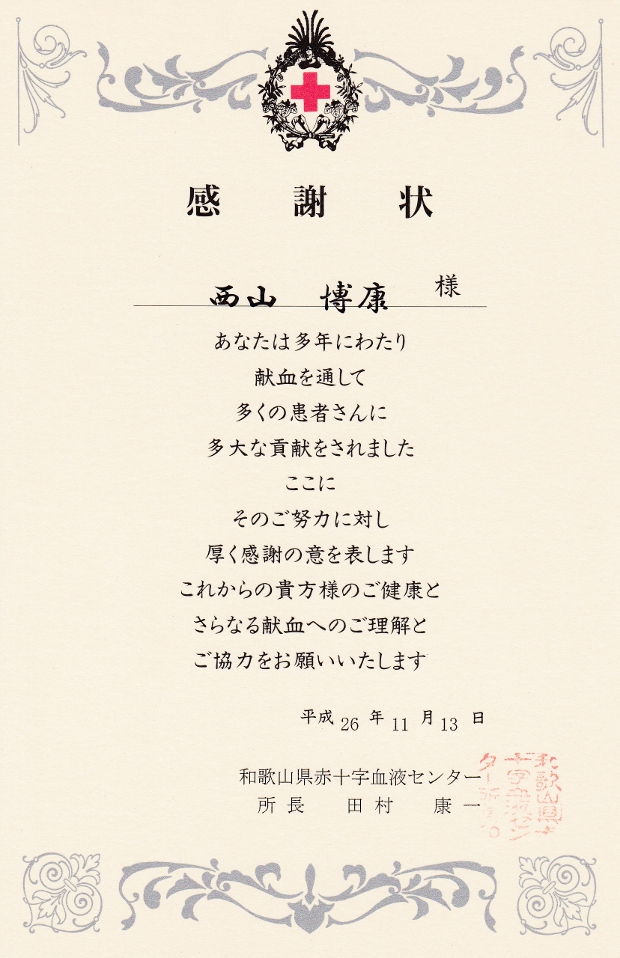 感謝状
西山 博康 様
あなたは多年にわたり
献血を通して
多くの患者さんに
多大な貢献をされました
ここに
そのご努力に対し
厚く感謝の意を表します
これからの貴方様のご健康と
さらなる献血へのご理解と
ご協力をお願いいたします
平成 26 年 11 月 13 日
和歌山県赤十字血液センター
所長 田村 康一